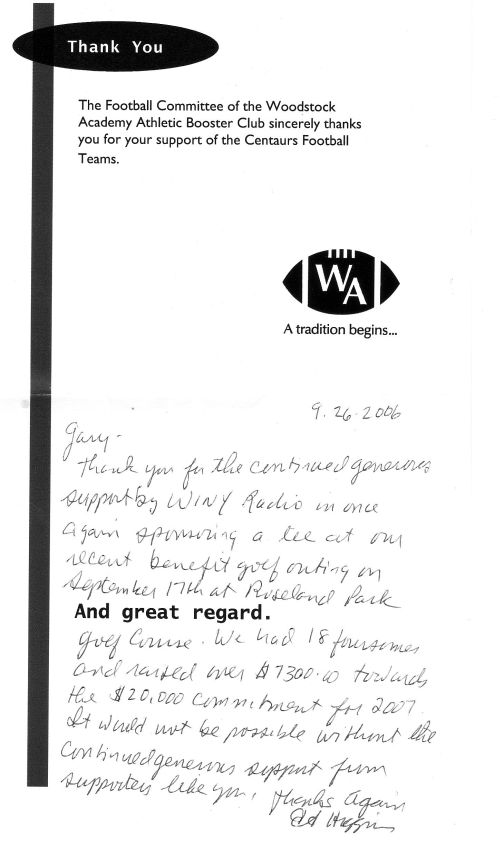 Thank You
The Football Committee of the Woodstock
Academy Athletic Booster Club sincerely thanks
you for your support of the Centaurs Football
Teams.
WA
A tradition begins...
9.26.2006
Gary-
Thank you for the continued generous
support by WINY Radio in once
again sponsoring a tee at our
recent benefit golf outing on
September 17th at Roseland Park
And great regard.
Golf Course. We had 18 foursomes
and raised over $7300.00 towards
the $20,000 commitment for 2007.
It would not be possible without the
continued generous support from
supporters like you. Thanks Again
Ed